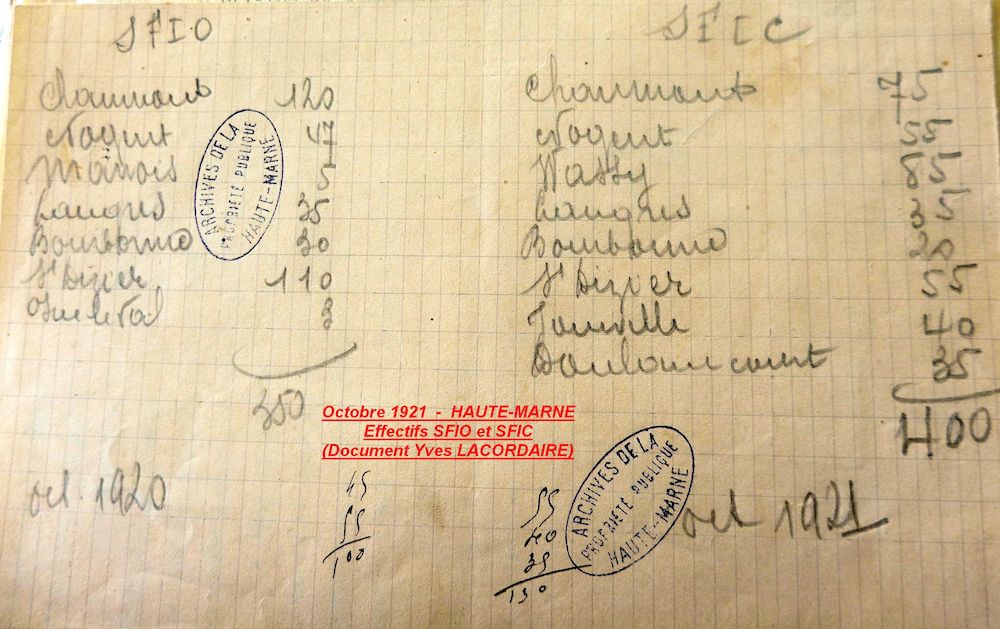 SFIO
Chaumont 120
Nogent 47
Manois 5
Langres 35
Bourbonne 30
St Dizier 110
3
350
oct. 1920
SFIC
Chaumont 75
Nogent 55
Wassy 85
Langres 35
Bourbonne 20
St Dizier 55
Joinville 40
Doulaincourt 35
400
oct 1921
ARCHIVES DE LA
PROPRIÉTÉ PUBLIQUE
HAUTE-MARNE
Octobre 1921 - HAUTE-MARNE
Effectifs SFIO et SFIC
(Document Yves LACORDAIRE)
45
55
100
55
40
35
130
ARCHIVES DE LA
PROPRIÉTÉ PUBLIQUE
HAUTE-MARNE